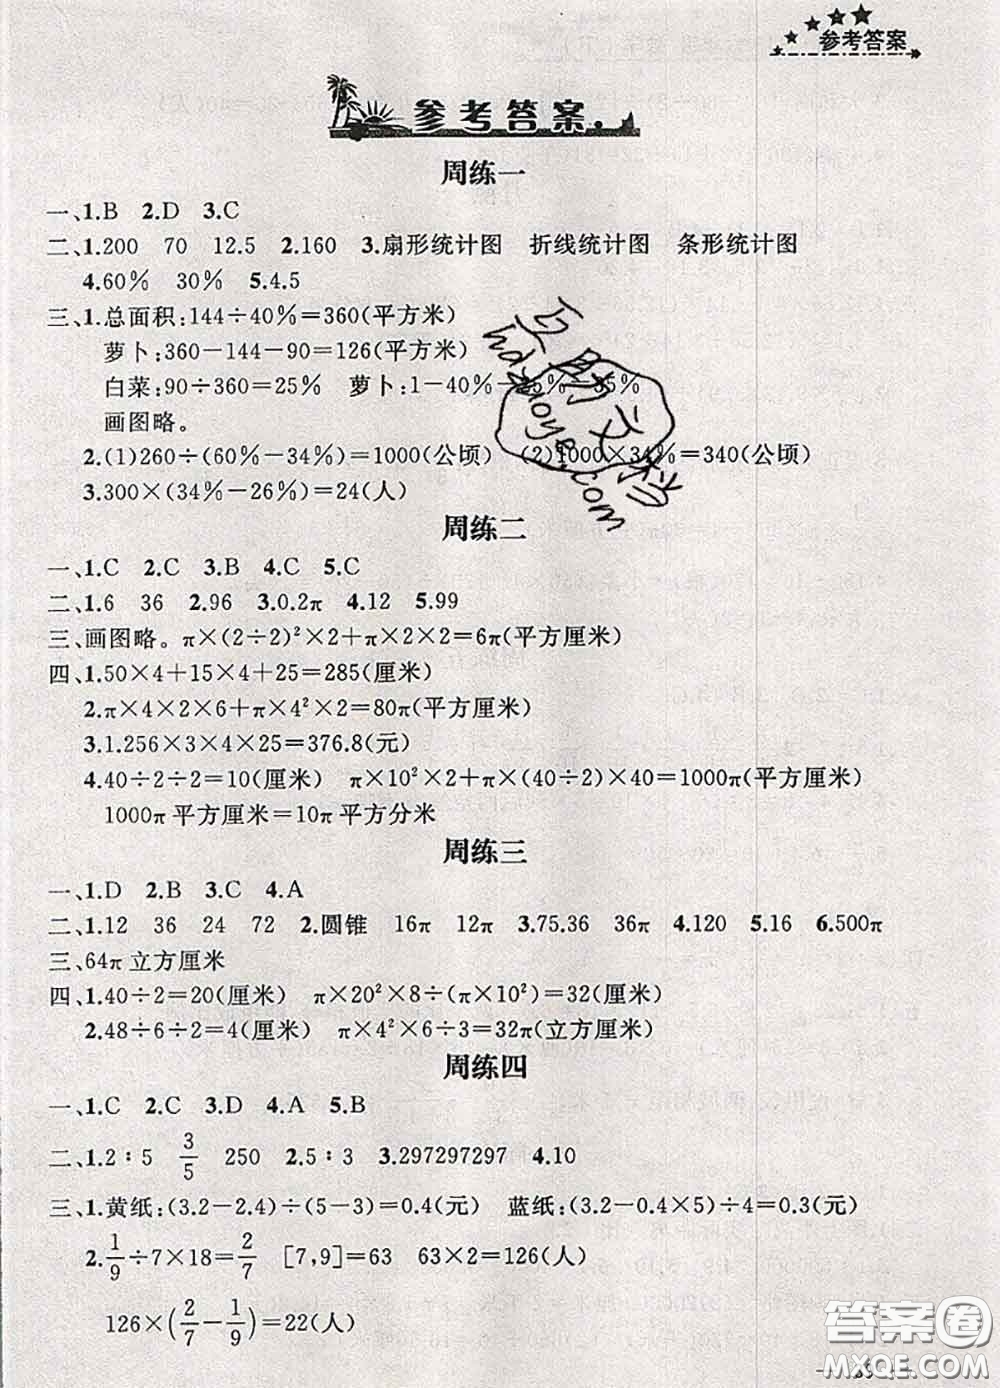 参考答案
参考答案
周练一
一、1.B 2.D 3.C
二、1.200 70 12.5 2.160 3.扇形统计图 折线统计图 条形统计图
4.60% 30% 5.4.5
三、1.总面积:144÷40%=360(平方米)
萝卜:360-144-90=126(平方米)
白菜:90÷360=25% 萝卜:1-40%-25%=35%
画图略。
2.(1)260÷(60%-34%)=1000(公顷) (2)1000×34%=340(公顷)
3.300×(34%-26%)=24(人)
周练二
一、1.C 2.C 3.B 4.C 5.C
二、1.6 36 2.96 3.0.2π 4.12 5.99
三、画图略。π×(2÷2)²×2+π×2×2=6π(平方厘米)
四、1.50×4+15×4+25=285(厘米)
2.π×4×2×6+π×4²×2=80π(平方厘米)
3.1.256×3×4×25=376.8(元)
4.40÷2÷2=10(厘米) π×10²×2+π×(40÷2)×40=1000π(平方厘米)
1000π平方厘米=10π平方分米
周练三
一、1.D 2.B 3.C 4.A
二、1.12 36 24 72 2.圆锥 16π 12π 3.75.36 36π 4.120 5.16 6.500π
三、64π立方厘米
四、1.40÷2=20(厘米) π×20²×8÷(π×10²)=32(厘米)
2.48÷6÷2=4(厘米) π×4²×6÷3=32π(立方厘米)
周练四
一、1.C 2.C 3.D 4.A 5.B
二、1.2∶5 3/5 250 2.5∶3 3.297297297 4.10
三、1.黄纸:(3.2-2.4)÷(5-3)=0.4(元) 蓝纸:(3.2-0.4×5)÷4=0.3(元)
2.1/9÷7×18=2/7 [7,9]=63 63×2=126(人)
126×(2/7-1/9)=22(人)
答案圈
MXQE.COM